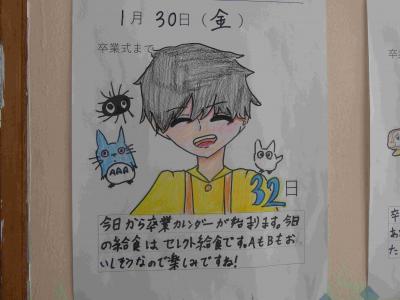 1月 30日(金)
卒業式まで
32日
今日から卒業カレンダーが始まります。今日
の給食はセレクト給食です。AもBもお
いしそうなので楽しみですね!